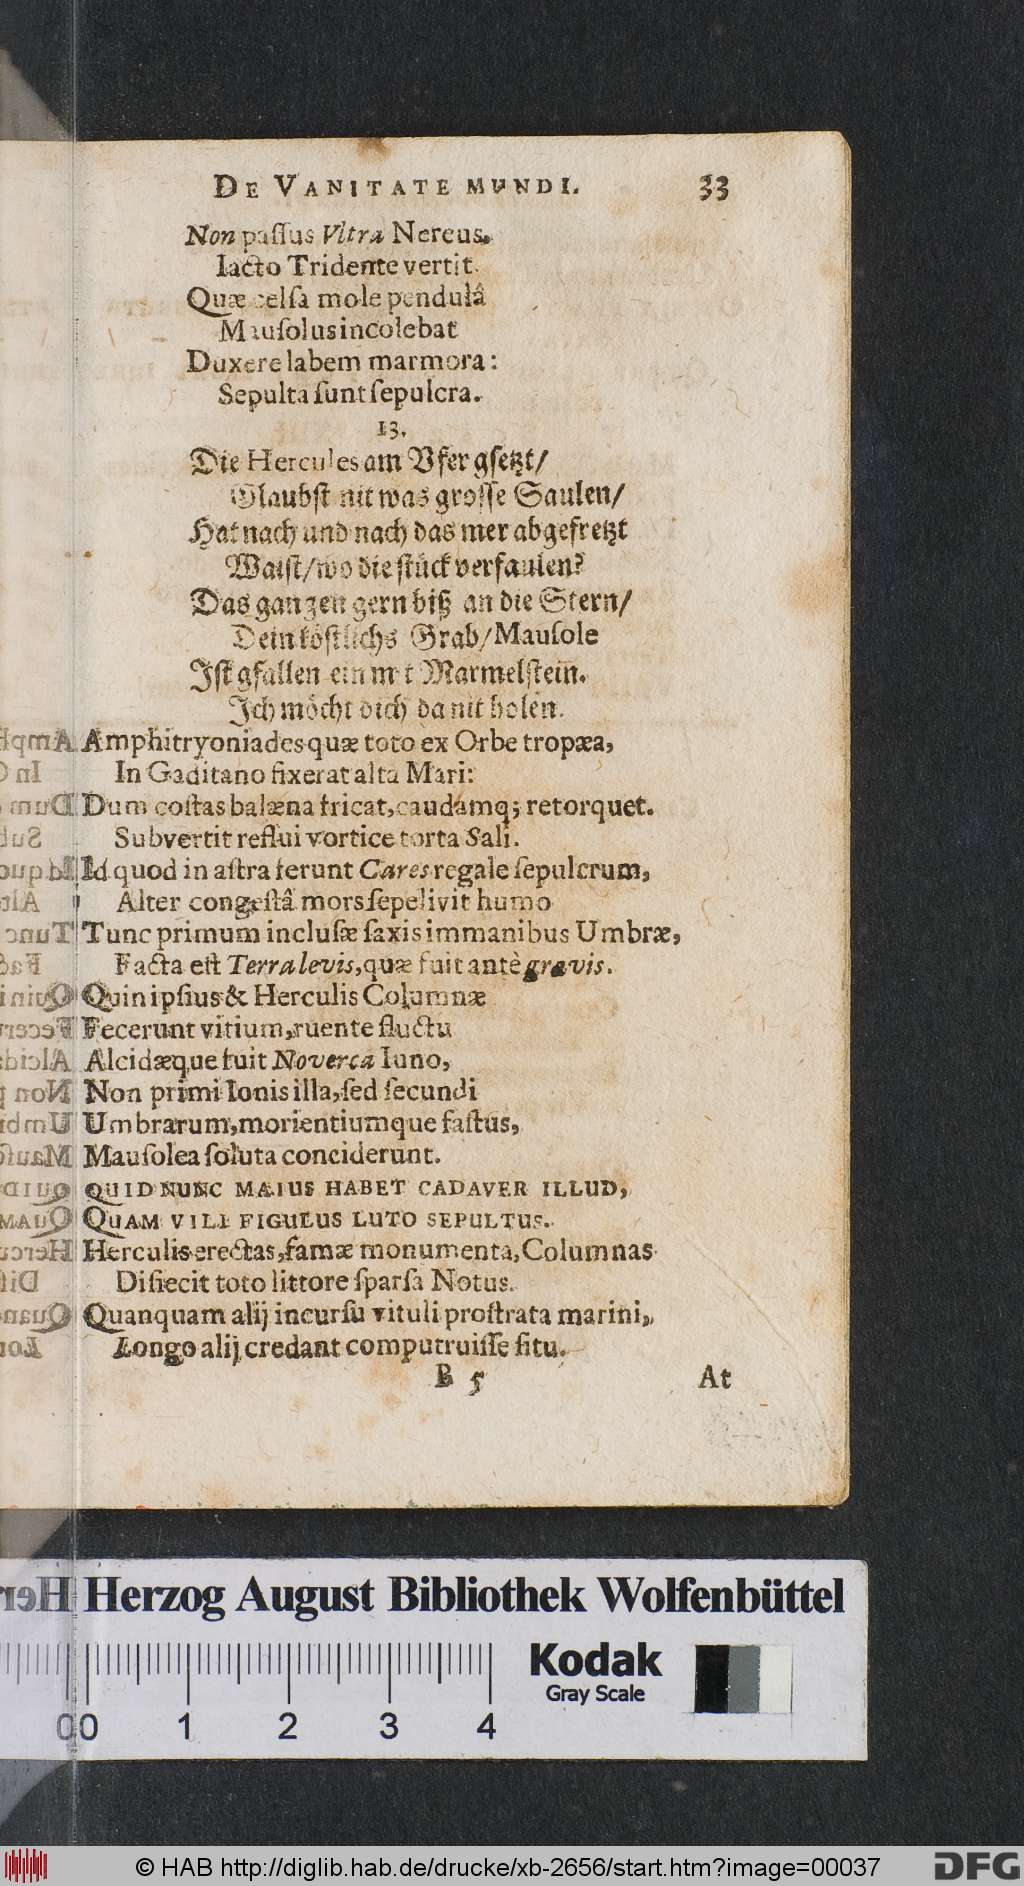 DE VANITATE MUNDI. 33
Non paſſus Vltra Nereus,
Iacto Tridente vertit.
Quæ celſa mole pendulâ
Mauſolus incolebat
Duxere labem marmora:
Sepulta ſunt ſepulcra.
13.
Die Hercules am Vfer gſetzt/
Glaubſt nit was groſſe Saulen/
Hat nach und nach das mer abgefretzt
Waiſt/wo die ſtück verfaulen?
Das ganzen gern biß an die Stern/
Dein köſtlichs Grab/Mauſole
Iſt gfallen ein mit Marmelſtein.
Ich möcht dich da nit holen.
Amphitryoniades quæ toto ex Orbe tropæa,
In Gaditano fixerat alta Mari:
Dum coſtas balæna fricat, caudamq; retorquet.
Subvertit reflui vortice torta Sali.
Id quod in aſtra ferunt Cares regale ſepulcrum,
Alter congeſtâ mors ſepelivit humo
Tunc primum incluſæ ſaxis immanibus Umbræ,
Facta eſt Terra levis, quæ fuit antè gravis.
Quin ipſius & Herculis Columnæ
Fecerunt vitium, ruente fluctu
Alcidæque fuit Noverca Iuno,
Non primi Ionis illa, ſed ſecundi
Umbrarum, morientiumque faſtus,
Mauſolea ſoluta conciderunt.
QUID NUNC MAIUS HABET CADAVER ILLUD,
QUAM VILI FIGULUS LUTO SEPULTUS.
Herculis erectas, famæ monumenta, Columnas
Diſiecit toto littore ſparſa Notus.
Quanquam alij incurſu vituli proſtrata marini,
Longo alij credant computruiſſe ſitu.
B 5 At
Herzog August Bibliothek Wolfenbüttel
Kodak
Gray Scale
0 1 2 3 4
© HAB http://diglib.hab.de/drucke/xb-2656/start.htm?image=00037
DFG